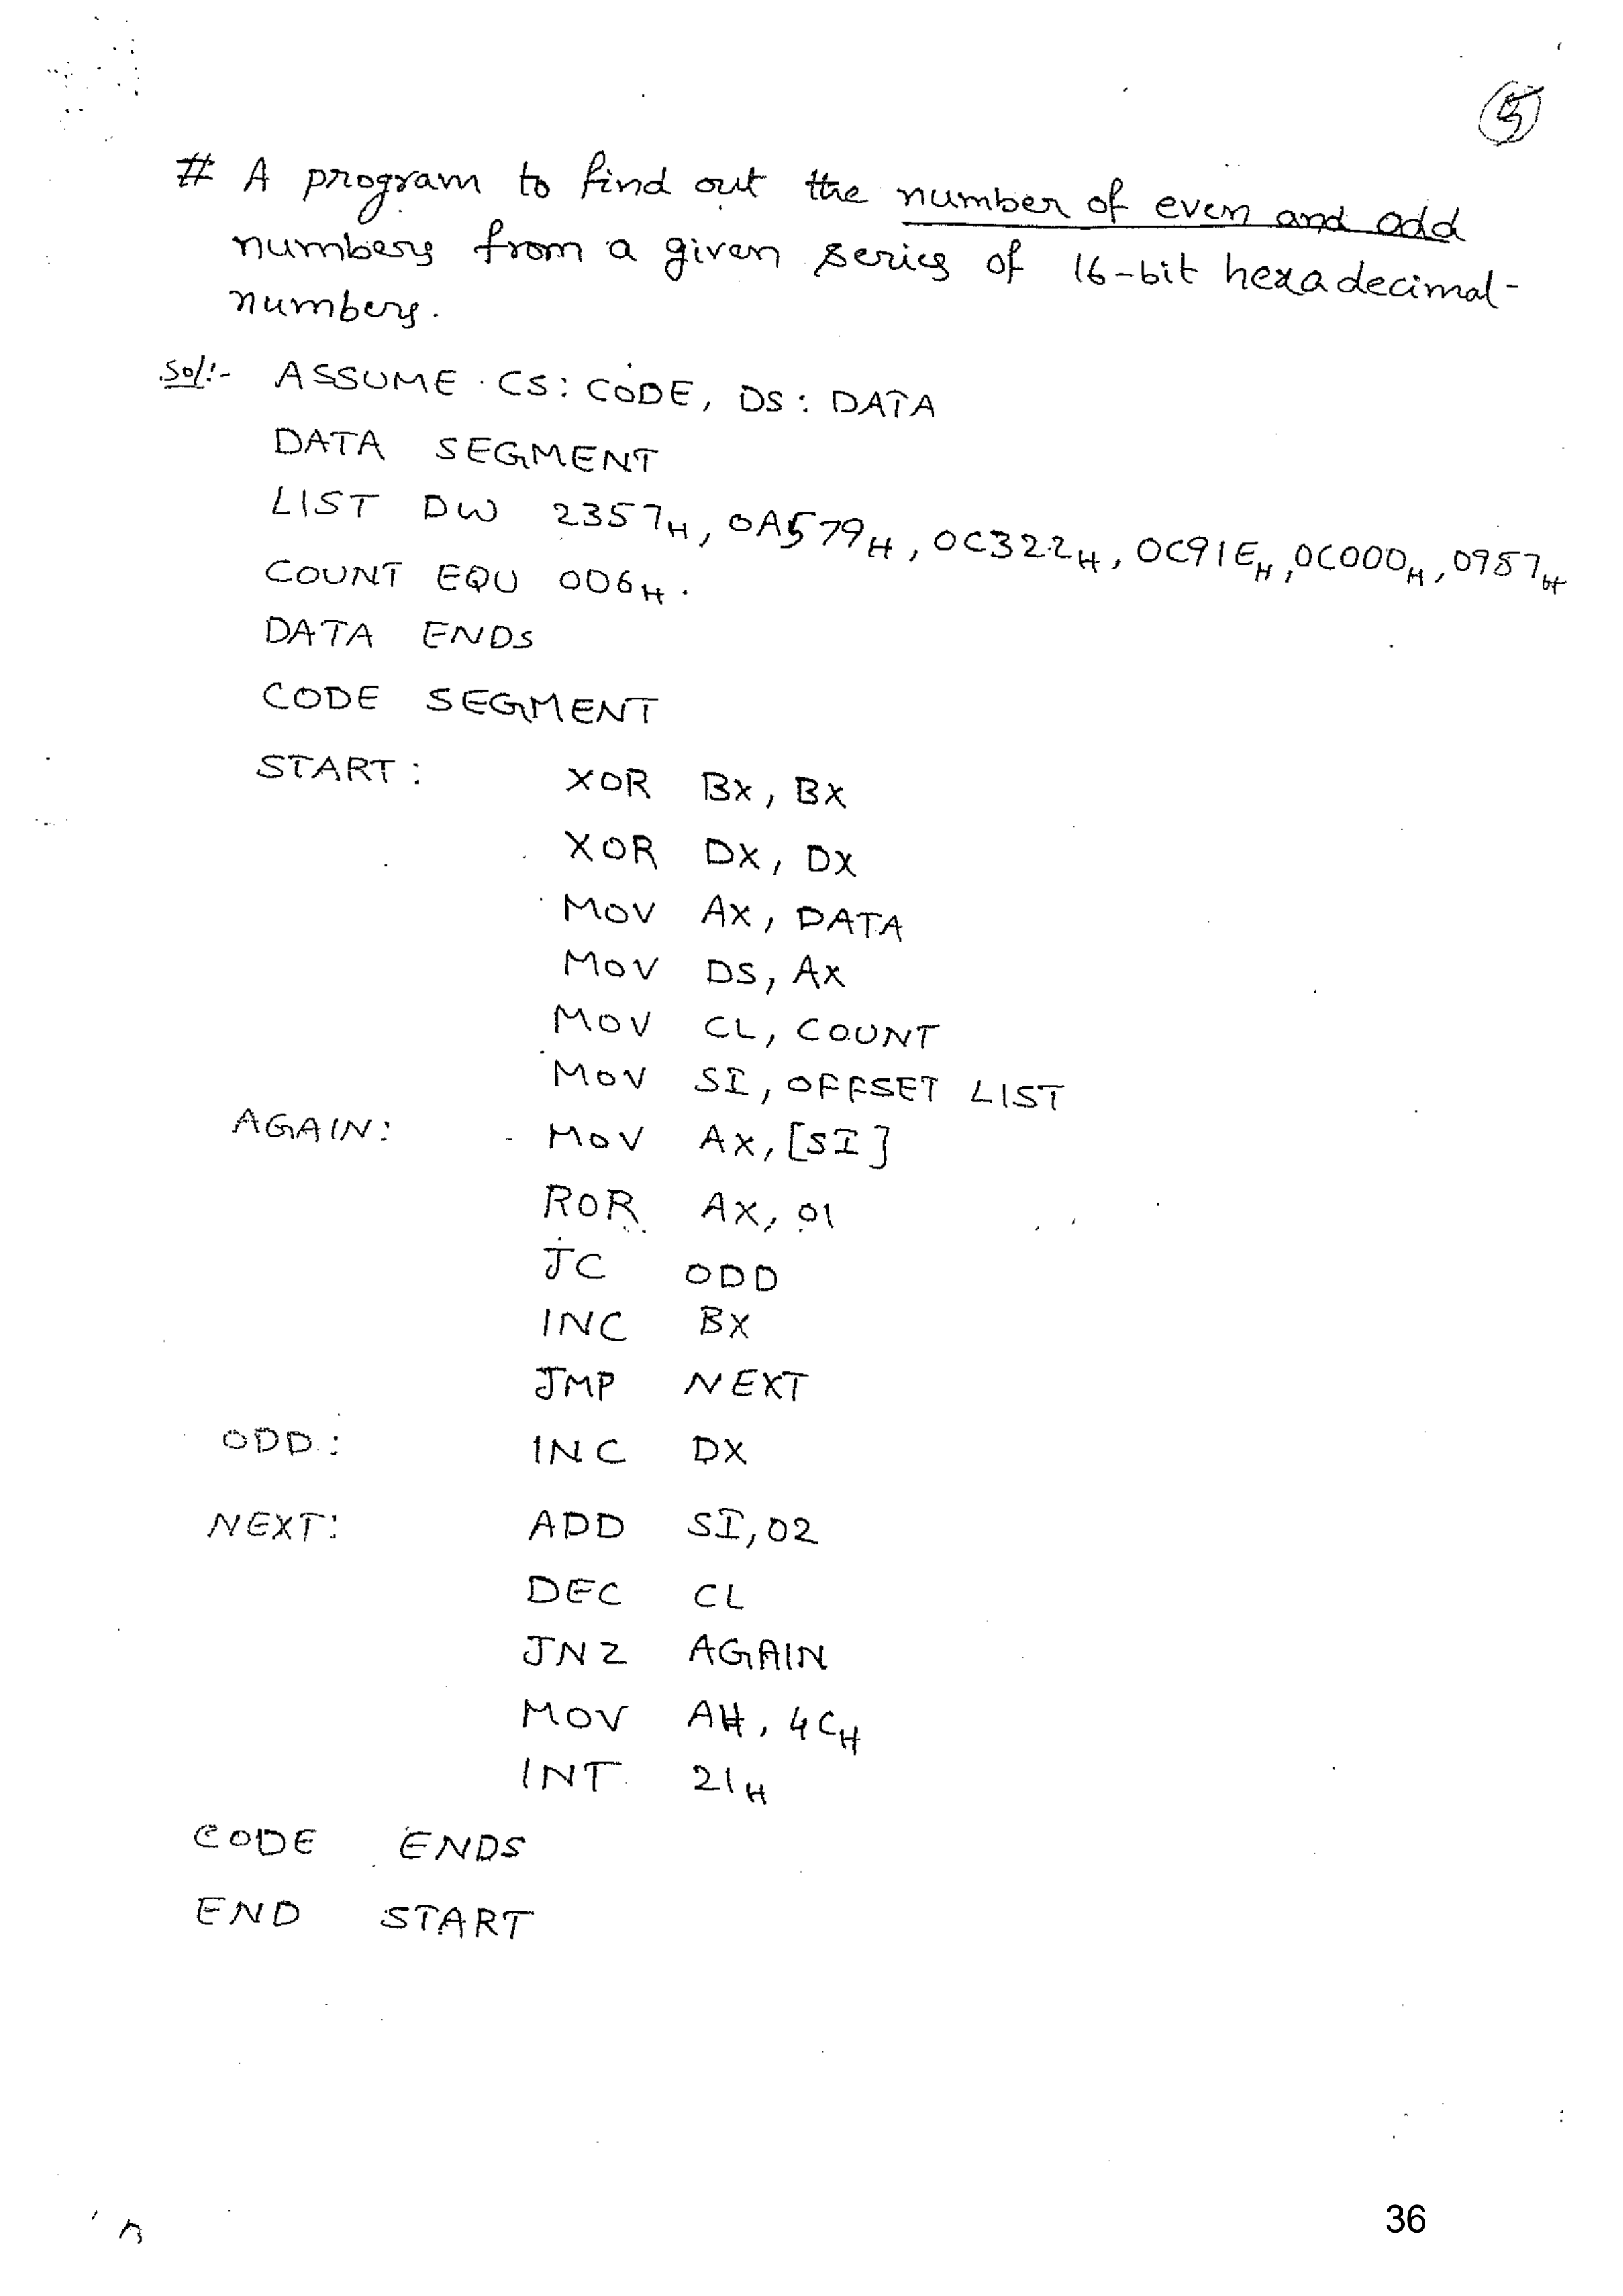 5
# A program to find out the number of even and odd
numbers from a given series of 16-bit hexadecimal-
numbers.
Sol:- ASSUME CS: CODE, DS: DATA
DATA SEGMENT
LIST DW 2357H, 0A579H, 0C322H, 0C91EH, 0C000H, 0957H
COUNT EQU 006H.
DATA ENDS
CODE SEGMENT
START: XOR BX, BX
XOR DX, DX
MOV AX, DATA
MOV DS, AX
MOV CL, COUNT
MOV SI, OFFSET LIST
AGAIN: MOV AX, [SI]
ROR AX, 01
JC ODD
INC BX
JMP NEXT
ODD: INC DX
NEXT: ADD SI, 02
DEC CL
JNZ AGAIN
MOV AH, 4CH
INT 21H
CODE ENDS
END START
36